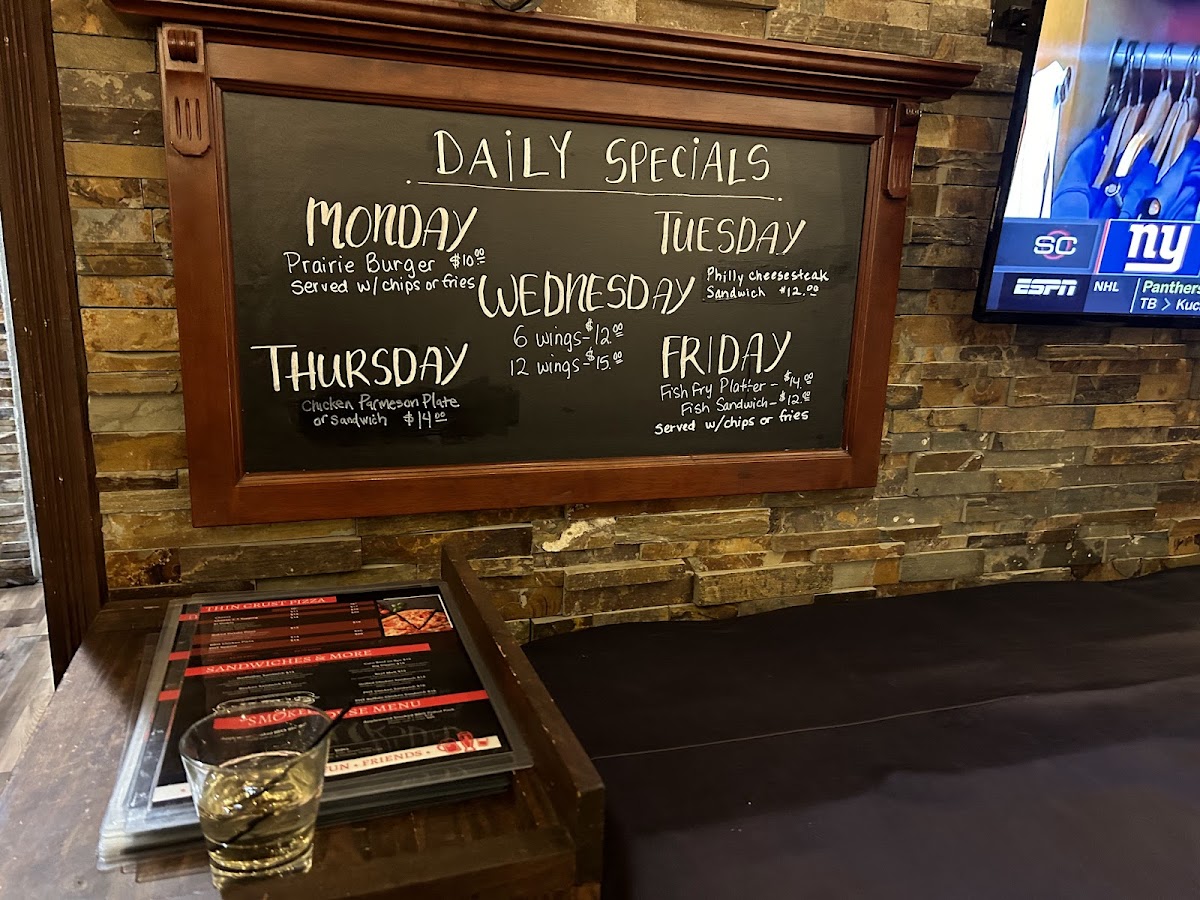 DAiLY SPECiALS
MONDAY
Prairie Burger $10.00
Served w/chips or fries
TUESDAY
Philly cheesesteak
Sandwich $12.00
WEDNESDAY
6 wings-$12.00
12 wings-$15.00
THURSDAY
Chicken Parmeson Plate
or Sandwich $14.00
FRIDAY
Fish Fry Platter - $14.00
Fish Sandwich - $12.00
Served w/chips or fries
SC
ny
ESPN
NHL
Panthers
TB > Kuc
THIN CRUST PIZZA
SANDWICHES & MORE
MENU
UN • FRIENDS •